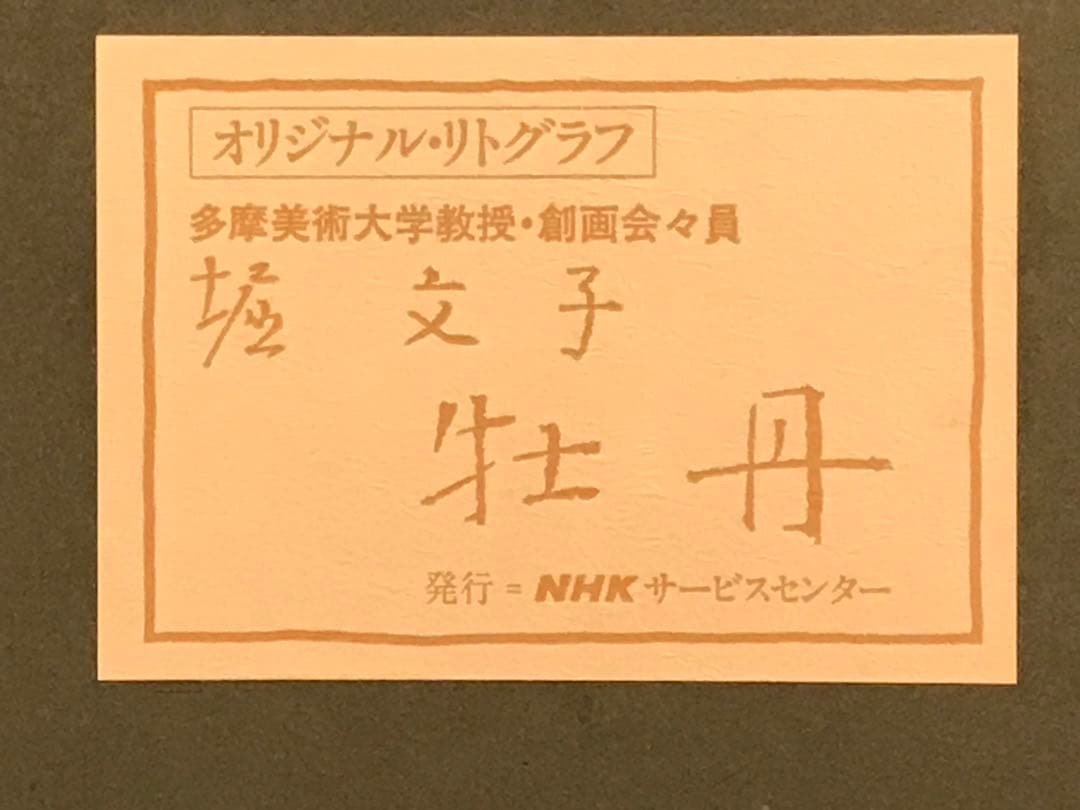 オリジナル・リトグラフ
多摩美術大学教授・創画会々員
堀 文子
牡 丹
発行 = NHK サービスセンター